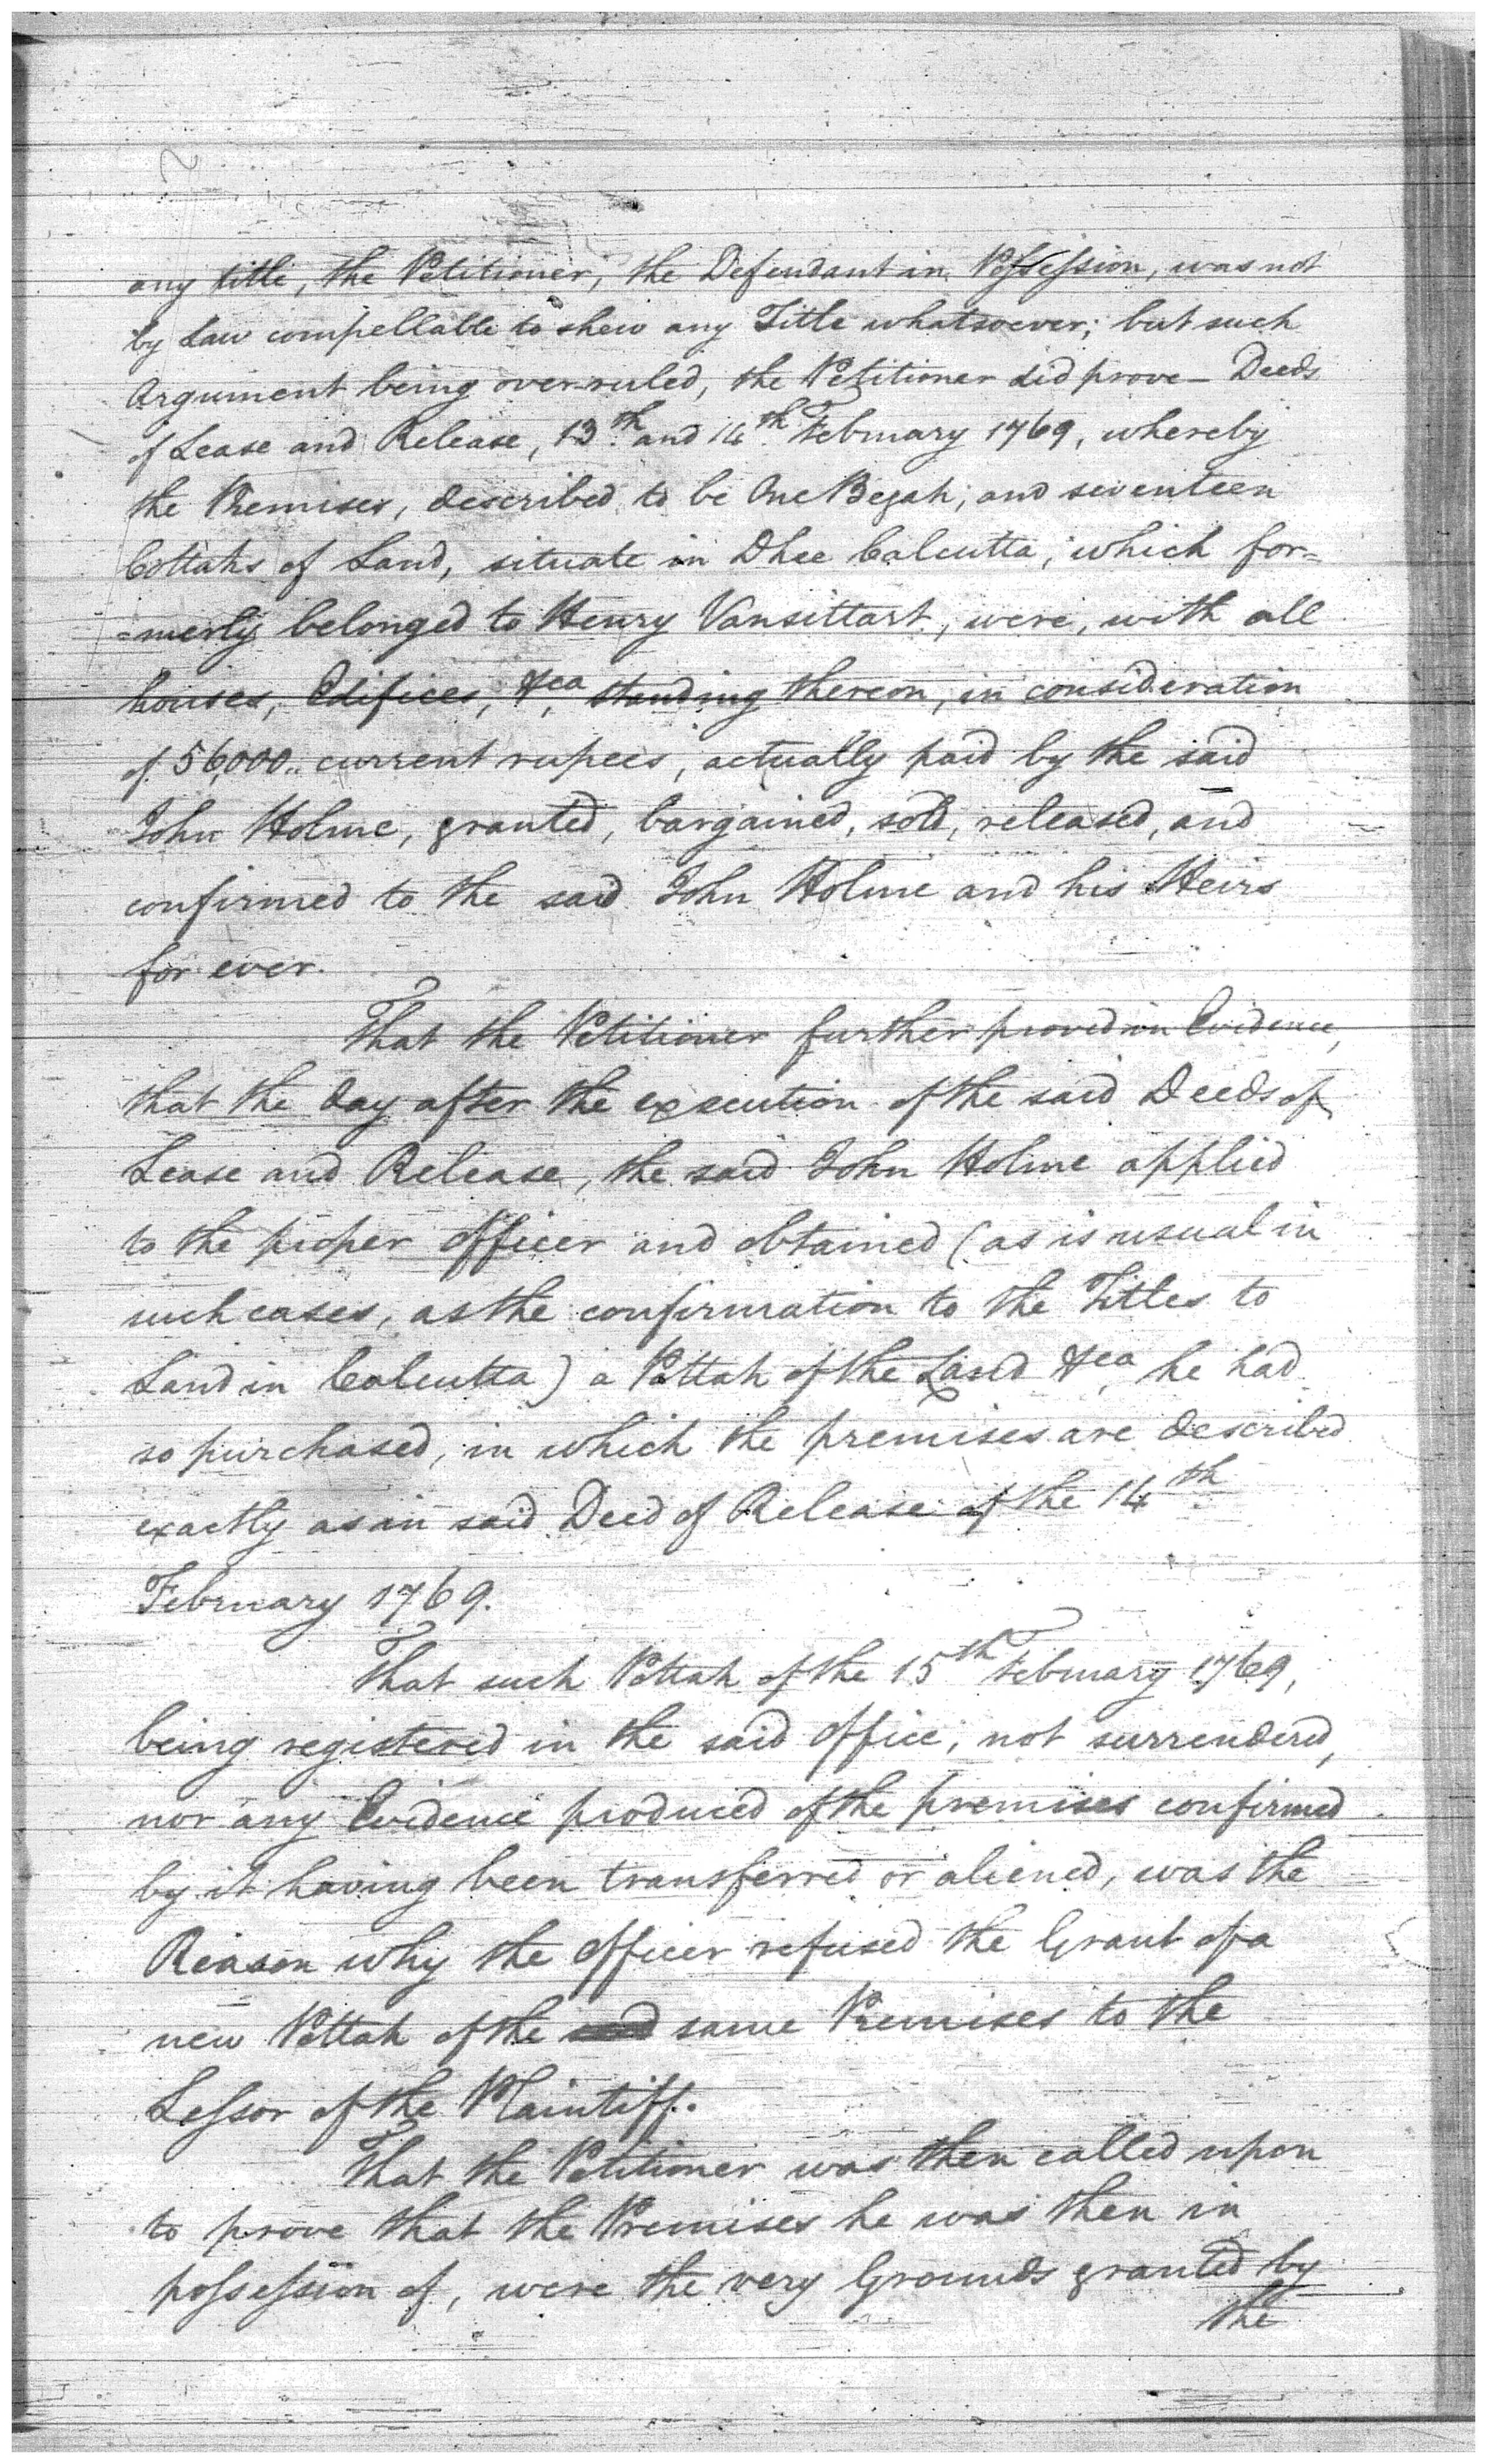 any title, the Petitioner, the Defendant in Possession, was not
by Law compellable to shew any Title whatsoever; but such
Argument being over-ruled, the Petitioner did prove – Deeds
of Lease and Release, 13th and 14th February 1769, whereby
the Premises, described to be One Begah, and seventeen
Cottahs of Land, situate in Dhee Calcutta, which for=
=merly belonged to Henry Vansittart, were, with all
houses, Edifices, &ca, standing thereon, in consideration
of 56,000.. current rupees, actually paid by the said
John Holme, granted, bargained, sold, released, and
confirmed to the said John Holme and his Heirs
for ever.
That the Petitioner further proved in Evidence,
that the day after the execution of the said Deeds of
Lease and Release, the said John Holme applied
to the proper Officer and obtained (as is usual in
such cases, as the confirmation to the Titles to
Land in Calcutta) a Pottah of the Land &ca, he had
so purchased, in which the premises are described
exactly as in said Deed of Release of the 14th
February 1769.
That such Pottah of the 15th February 1769,
being registered in the said Office, not surrendered,
nor any Evidence produced of the premises confirmed
by it having been transferred or aliened, was the
Reason why the Officer refused the Grant of a
new Pottah of the same Premises to the
Lessor of the Plaintiff.
That the Petitioner was then called upon
to prove that the Premises he was then in
possession of, were the very Grounds granted by
the